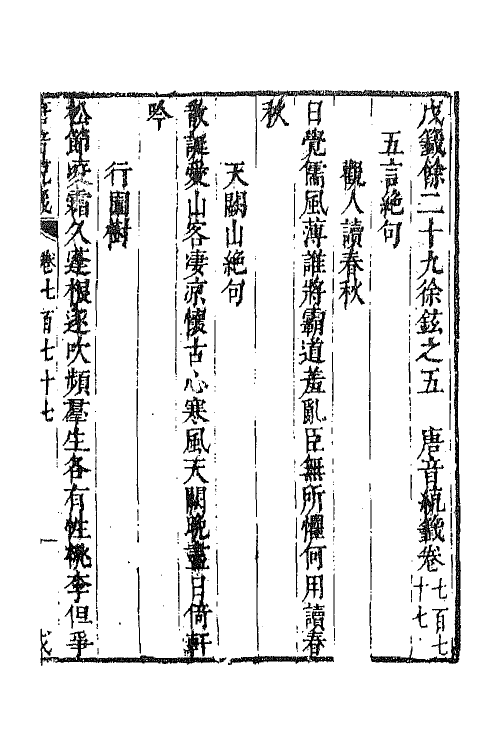 戊籖餘二十九徐鉉之五　唐音統籖卷七百七十七
五言絶句
觀人讀春秋
日覺儒風薄誰將霸道羞亂臣無所懼何用讀春
秋
天闕山絶句
散誕愛山客凄凉懷古心寒風天闕晚盡日倚軒
吟
行園樹
松節凌霜久蓬根逐吹頻羣生各有性桃李但爭
唐音統籖 卷七百七十七 一 戊